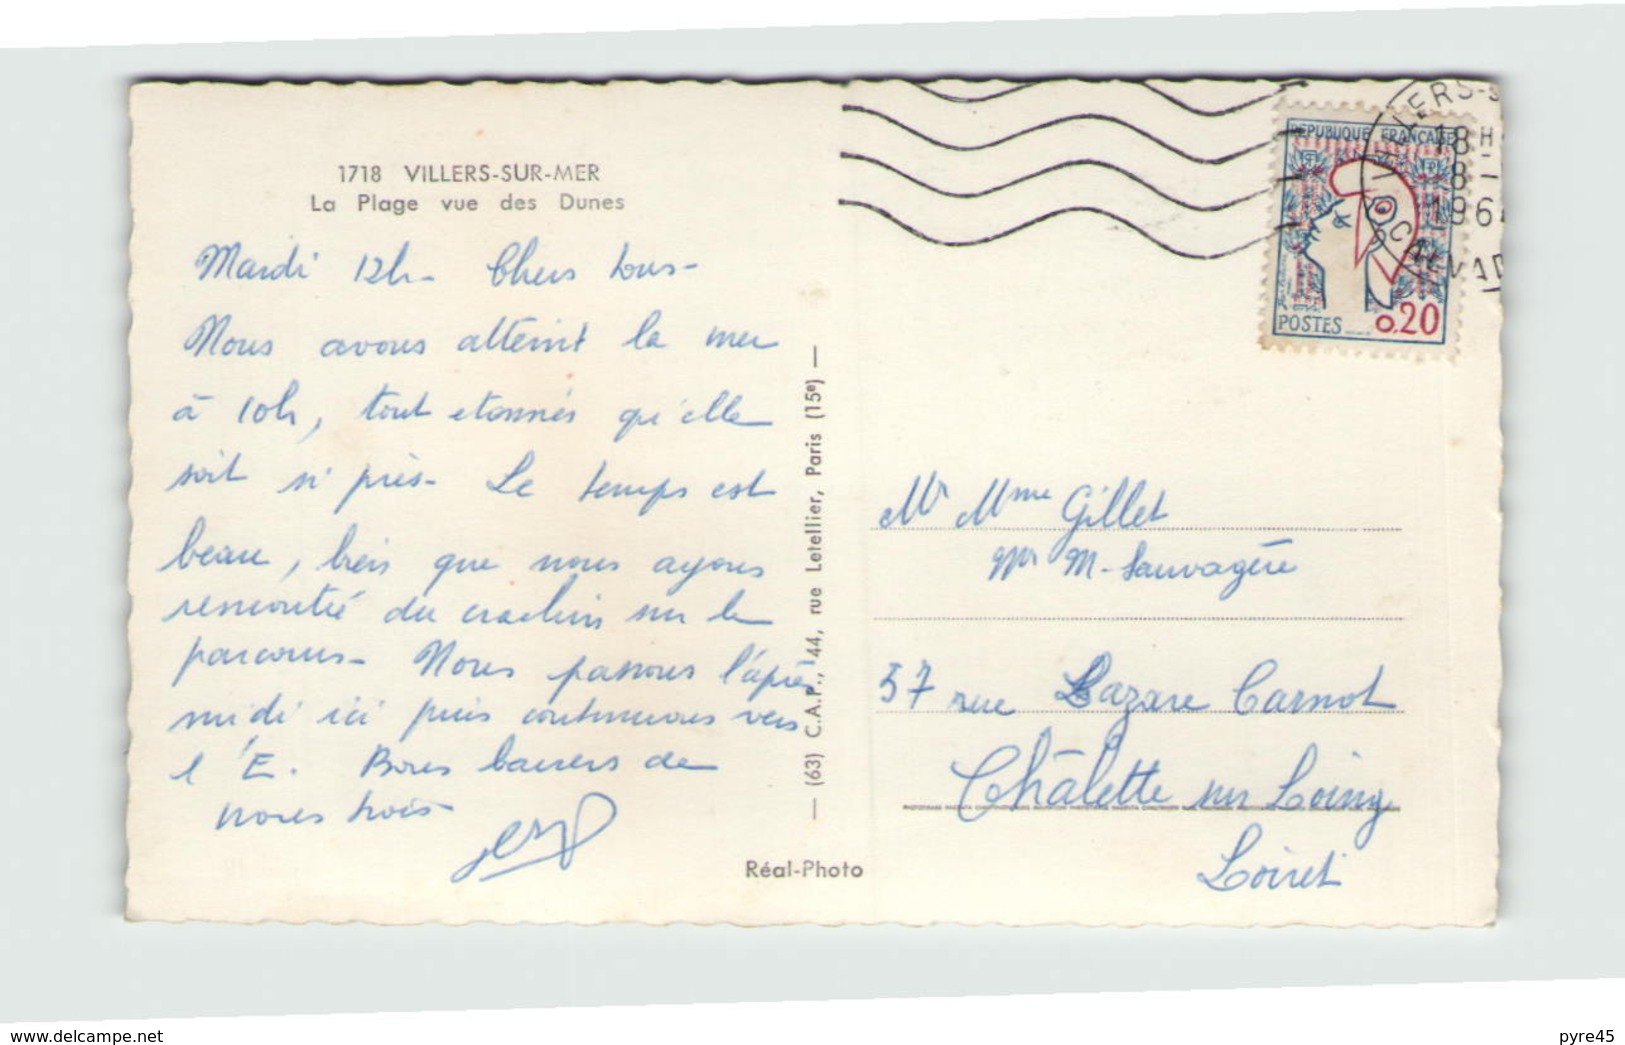 1718 VILLERS-SUR-MER
La Plage vue des Dunes
Mardi 12h - Chers tous -
Nous avons atteint la mer
à 10h, tout etonnés qu'elle
soit si près - Le temps est
beau, bien que nous ayons
rencontré du crachin sur le
parcours - Nous passons l'après
midi ici puis continuons vers
l'E. Bons baisers de
nous trois
— (63) C.A.P., 44, rue Letellier, Paris (15e) —
Réal-Photo
LERS-S
18H
8
196
CALVAD
RÉPUBLIQUE FRANÇAISE
RF
RF
POSTES
0.20
Mr Mme Gillet
M. Sauvagère
57 rue Lazare Carnot
Châlette sur Loing
Loiret
www.delcampe.net
pyre45